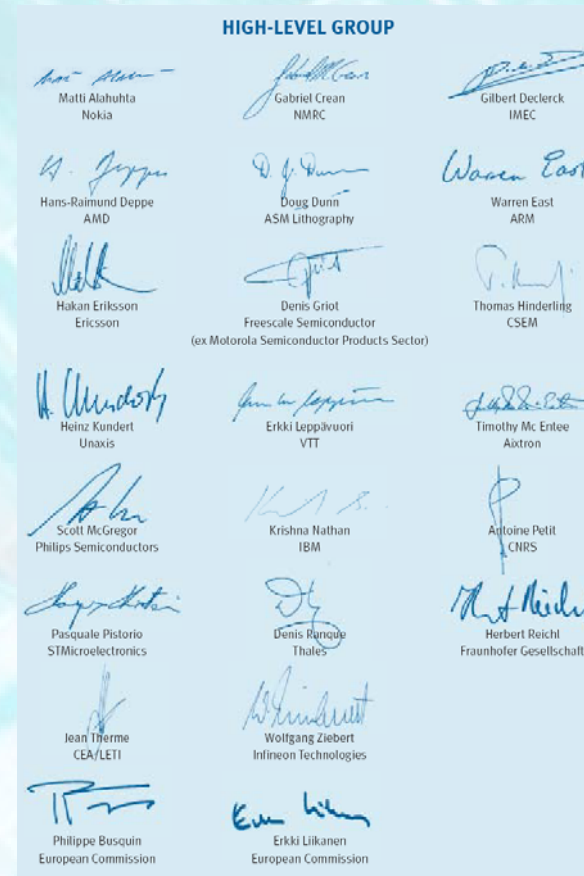 HIGH-LEVEL GROUP
Matti Alahuhta
Nokia
Gabriel Crean
NMRC
Gilbert Declerck
IMEC
Hans-Raimund Deppe
AMD
Doug Dunn
ASM Lithography
Warren East
Warren East
ARM
Hakan Eriksson
Ericsson
Denis Griot
Freescale Semiconductor
(ex Motorola Semiconductor Products Sector)
Thomas Hinderling
CSEM
Heinz Kundert
Unaxis
Erkki Leppävuori
VTT
Timothy Mc Entee
Aixtron
Scott McGregor
Philips Semiconductors
Krishna Nathan
IBM
Antoine Petit
CNRS
Pasquale Pistorio
STMicroelectronics
Denis Ranque
Thales
Herbert Reichl
Fraunhofer Gesellschaft
Jean Therme
CEA/LETI
Wolfgang Ziebert
Infineon Technologies
Philippe Busquin
European Commission
Erkki Liikanen
European Commission